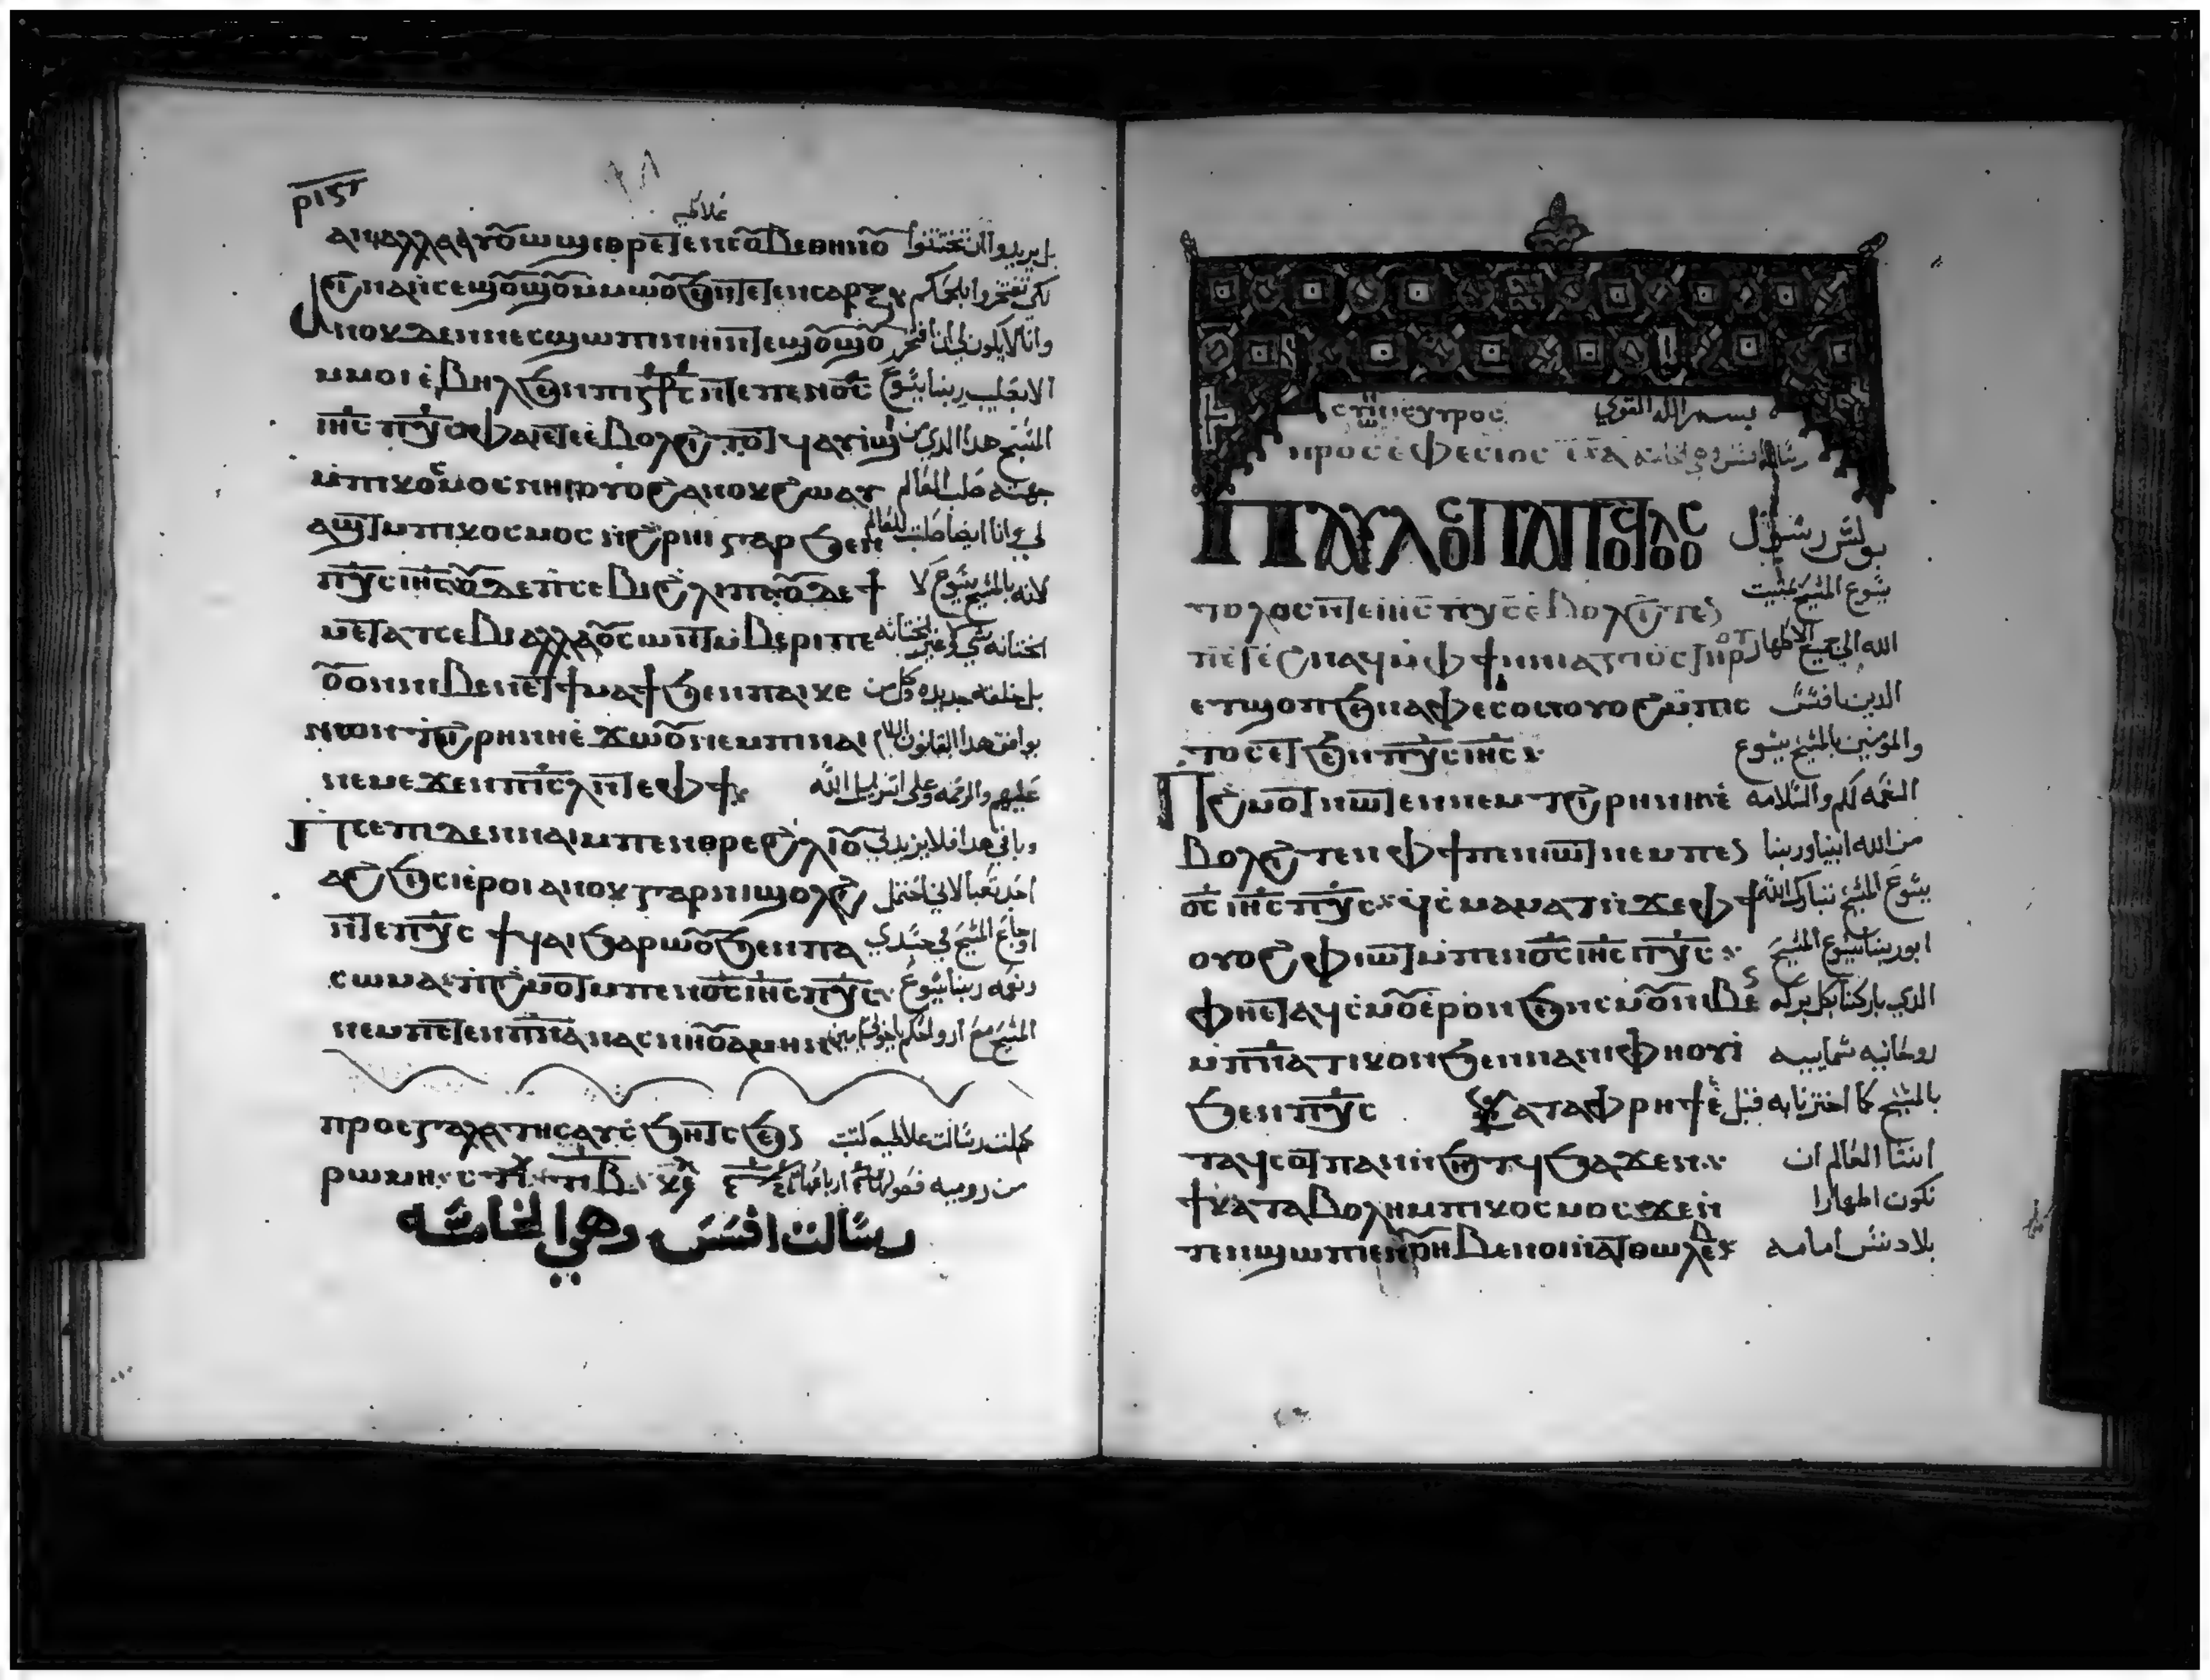 ⲣⲓⲋ
غلاطيه
ⲁⲛ ⲁⲗⲗⲁ ⲥⲉⲟⲩⲱϣ ⲉⲑⲣⲉⲧⲉⲛⲥⲟⲩⲃⲉ ⲑⲏⲛⲟⲩ بل يريدوا ان تختتنوا
ϩⲓⲛⲁ ⲛⲥⲉϣⲟⲩϣⲟⲩ ⲙⲙⲱⲟⲩ ϧⲉⲛ ⲧⲉⲧⲉⲛⲥⲁⲣⲝ لكي تفتخروا بلحمكم
ⲁⲛⲟⲕ ⲇⲉ ⲛⲛⲉⲥϣⲱⲡⲓ ⲛⲏⲓ ⲛⲧⲉϣⲟⲩϣⲟⲩ وانا لا يكون لي ان افتخر
ⲙⲙⲟⲓ ⲉⲃⲏⲗ ϧⲉⲛ ⲡⲓⲥⲧⲣⲥ ⲛⲧⲉ ⲡⲉⲛⲟⲥ الا بصليب ربنا يسوع
ⲓⲏⲥ ⲡⲭⲥ ⲫⲁⲓ ⲉⲧⲉ ⲉⲃⲟⲗϩⲓⲧⲟⲧϥ ⲁⲩⲓϣⲓ المسيح هدا الدي من
ⲙⲡⲓⲕⲟⲥⲙⲟⲥ ⲛⲏⲓ ⲟⲩⲟϩ ⲁⲛⲟⲕ ϩⲱ ⲁⲩ جهته صلب العالم
ⲁϣⲧ ⲙⲡⲓⲕⲟⲥⲙⲟⲥ ⲛϩⲣⲏⲓ ⲅⲁⲣ ϧⲉⲛ لي وانا ايضا صلبت للعالم
ⲡⲭⲥ ⲓⲏⲥ ⲟⲩⲇⲉ ⲡⲥⲉⲃⲓ ϩⲗⲓ ⲡⲉ ⲟⲩⲇⲉ ϯ لانه بالمسيح يسوع لا
ⲙⲉⲧⲁⲧⲥⲉⲃⲓ ⲁⲗⲗⲁ ⲟⲩⲥⲱⲛⲧ ⲙⲃⲉⲣⲓ ⲡⲉ الختانه شي ولا غير الختانه
ⲟⲩⲟⲛ ⲛⲓⲃⲉⲛ ⲉⲧϯⲙⲁϯ ϧⲉⲛ ⲡⲁⲓⲕⲉ بل خلقه جديده وكل من
ⲛⲱⲛ ⲧϩⲓⲣⲏⲛⲏ ⲉϫⲱⲟⲩ ⲛⲉⲙ ⲡⲓⲛⲁⲓ يوافق هدا القانون السلام
ⲛⲉⲙ ⲉϫⲉⲛ ⲡⲓⲥⲗ ⲛⲧⲉ ⲫϯ عليهم والرحمه وعلى اسريل الله
ⲡⲥⲉⲡⲓ ⲇⲉ ⲛⲛⲁⲓ ⲙⲡⲉⲛⲑⲣⲉ ϩⲗⲓ ⲟⲩ وباقي هدا فلا يزيدني
ⲁϩ ϧⲓⲥⲓ ⲉⲣⲟⲓ ⲁⲛⲟⲕ ⲅⲁⲣ ⲛⲓϣⲟⲗϩ احد تعبا لاني احتمل
ⲛⲧⲉ ⲡⲭⲥ ϯϥⲁⲓ ϧⲁⲣⲱⲟⲩ ϧⲉⲛ ⲡⲁ اوجاع المسيح في جسدي
ⲥⲱⲙⲁ ⲡϩⲙⲟⲧ ⲙⲡⲉⲛⲟⲥ ⲓⲏⲥ ⲡⲭⲥ ونعمه ربنا يسوع
ⲛⲉⲙ ⲡⲉⲧⲉⲛⲡⲛⲁ ⲛⲁⲥⲛⲏⲟⲩ ⲁⲙⲏⲛ المسيح مع ارواحكم ياخوتي امين
ⲡⲣⲟⲥ ⲅⲁⲗⲁⲧⲏⲥ ⲁⲩⲥϧⲏⲧⲥ ϧⲉⲛ كملت رسالت غلاطيه كتبت
ⲣⲱⲙⲏ من روميه
رسالت افسس وهي الخامسه
ⲥⲩⲛ ⲓⲥⲭⲩⲣⲟⲥ بسم الله القوي
ⲡⲣⲟⲥ ⲉⲫⲉⲥⲓⲟⲥ رساله افسس وهي الخامسه
ⲡⲁⲩⲗⲟⲥ ⲡⲁⲡⲟⲥⲧⲟⲗⲟⲥ بولس رسول
ⲧⲟⲗⲟⲥ ⲛⲧⲉ ⲓⲏⲥ ⲡⲭⲥ ⲉⲃⲟⲗϩⲓⲧⲉⲛ يسوع المسيح بمشيت
ⲡⲉⲧⲉϩⲛⲁϥ ⲙⲫϯ ⲛⲛⲓⲁⲅⲓⲟⲥ ⲧⲏⲣⲟⲩ الله الى جميع الاطهار
ⲉⲧϣⲟⲡ ϧⲉⲛ ⲁⲫⲉⲥⲟⲥ ⲟⲩⲟϩ ⲙⲡⲓⲥ الدين بافسس
ⲧⲟⲥ ⲉⲧϧⲉⲛ ⲡⲭⲥ ⲓⲏⲥ والمومنين بالمسيح يسوع
ⲡϩⲙⲟⲧ ⲛⲱⲧⲉⲛ ⲛⲉⲙ ⲧϩⲓⲣⲏⲛⲏ ⲉ النعمه لكم والسلامه
ⲃⲟⲗϩⲓⲧⲉⲛ ⲫϯ ⲡⲉⲛⲓⲱⲧ ⲛⲉⲙ ⲡⲉⲛ من الله ابينا وربنا
ⲟⲥ ⲓⲏⲥ ⲡⲭⲥ ϥⲥⲙⲁⲙⲁⲧ ⲛϫⲉ ⲫϯ يسوع المسيح تبارك الله
ⲟⲩⲟϩ ⲫⲓⲱⲧ ⲙⲡⲉⲛⲟⲥ ⲓⲏⲥ ⲡⲭⲥ ابو ربنا يسوع المسيح
ⲫⲏⲉⲧⲁϥⲥⲙⲟⲩ ⲉⲣⲟⲛ ϧⲉⲛ ⲥⲙⲟⲩ ⲛⲓⲃⲉⲛ الدي باركنا بكل بركه
ⲙⲡⲛⲁⲧⲓⲕⲟⲛ ϧⲉⲛ ⲛⲁⲛⲓⲫⲏⲟⲩⲓ روحانيه سماييه
ϧⲉⲛ ⲡⲭⲥ ⲕⲁⲧⲁ ⲫⲣⲏϯ ⲉ بالمسيح كما اختارنا به قبل
ⲧⲁϥⲥⲟⲧⲡⲁⲛ ⲛϧⲏⲧϥ ϧⲁϫⲉⲛ انشا العالم ان
ϯⲕⲁⲧⲁⲃⲟⲗⲏ ⲙⲡⲓⲕⲟⲥⲙⲟⲥ ϫⲉⲛ نكون اطهارا
ⲧⲉⲛϣⲱⲡⲓ ⲉⲛⲟⲩⲏⲃ ⲉⲛⲟⲓ ⲛⲁⲧⲑⲱⲗⲉⲃ بلا دنس امامه